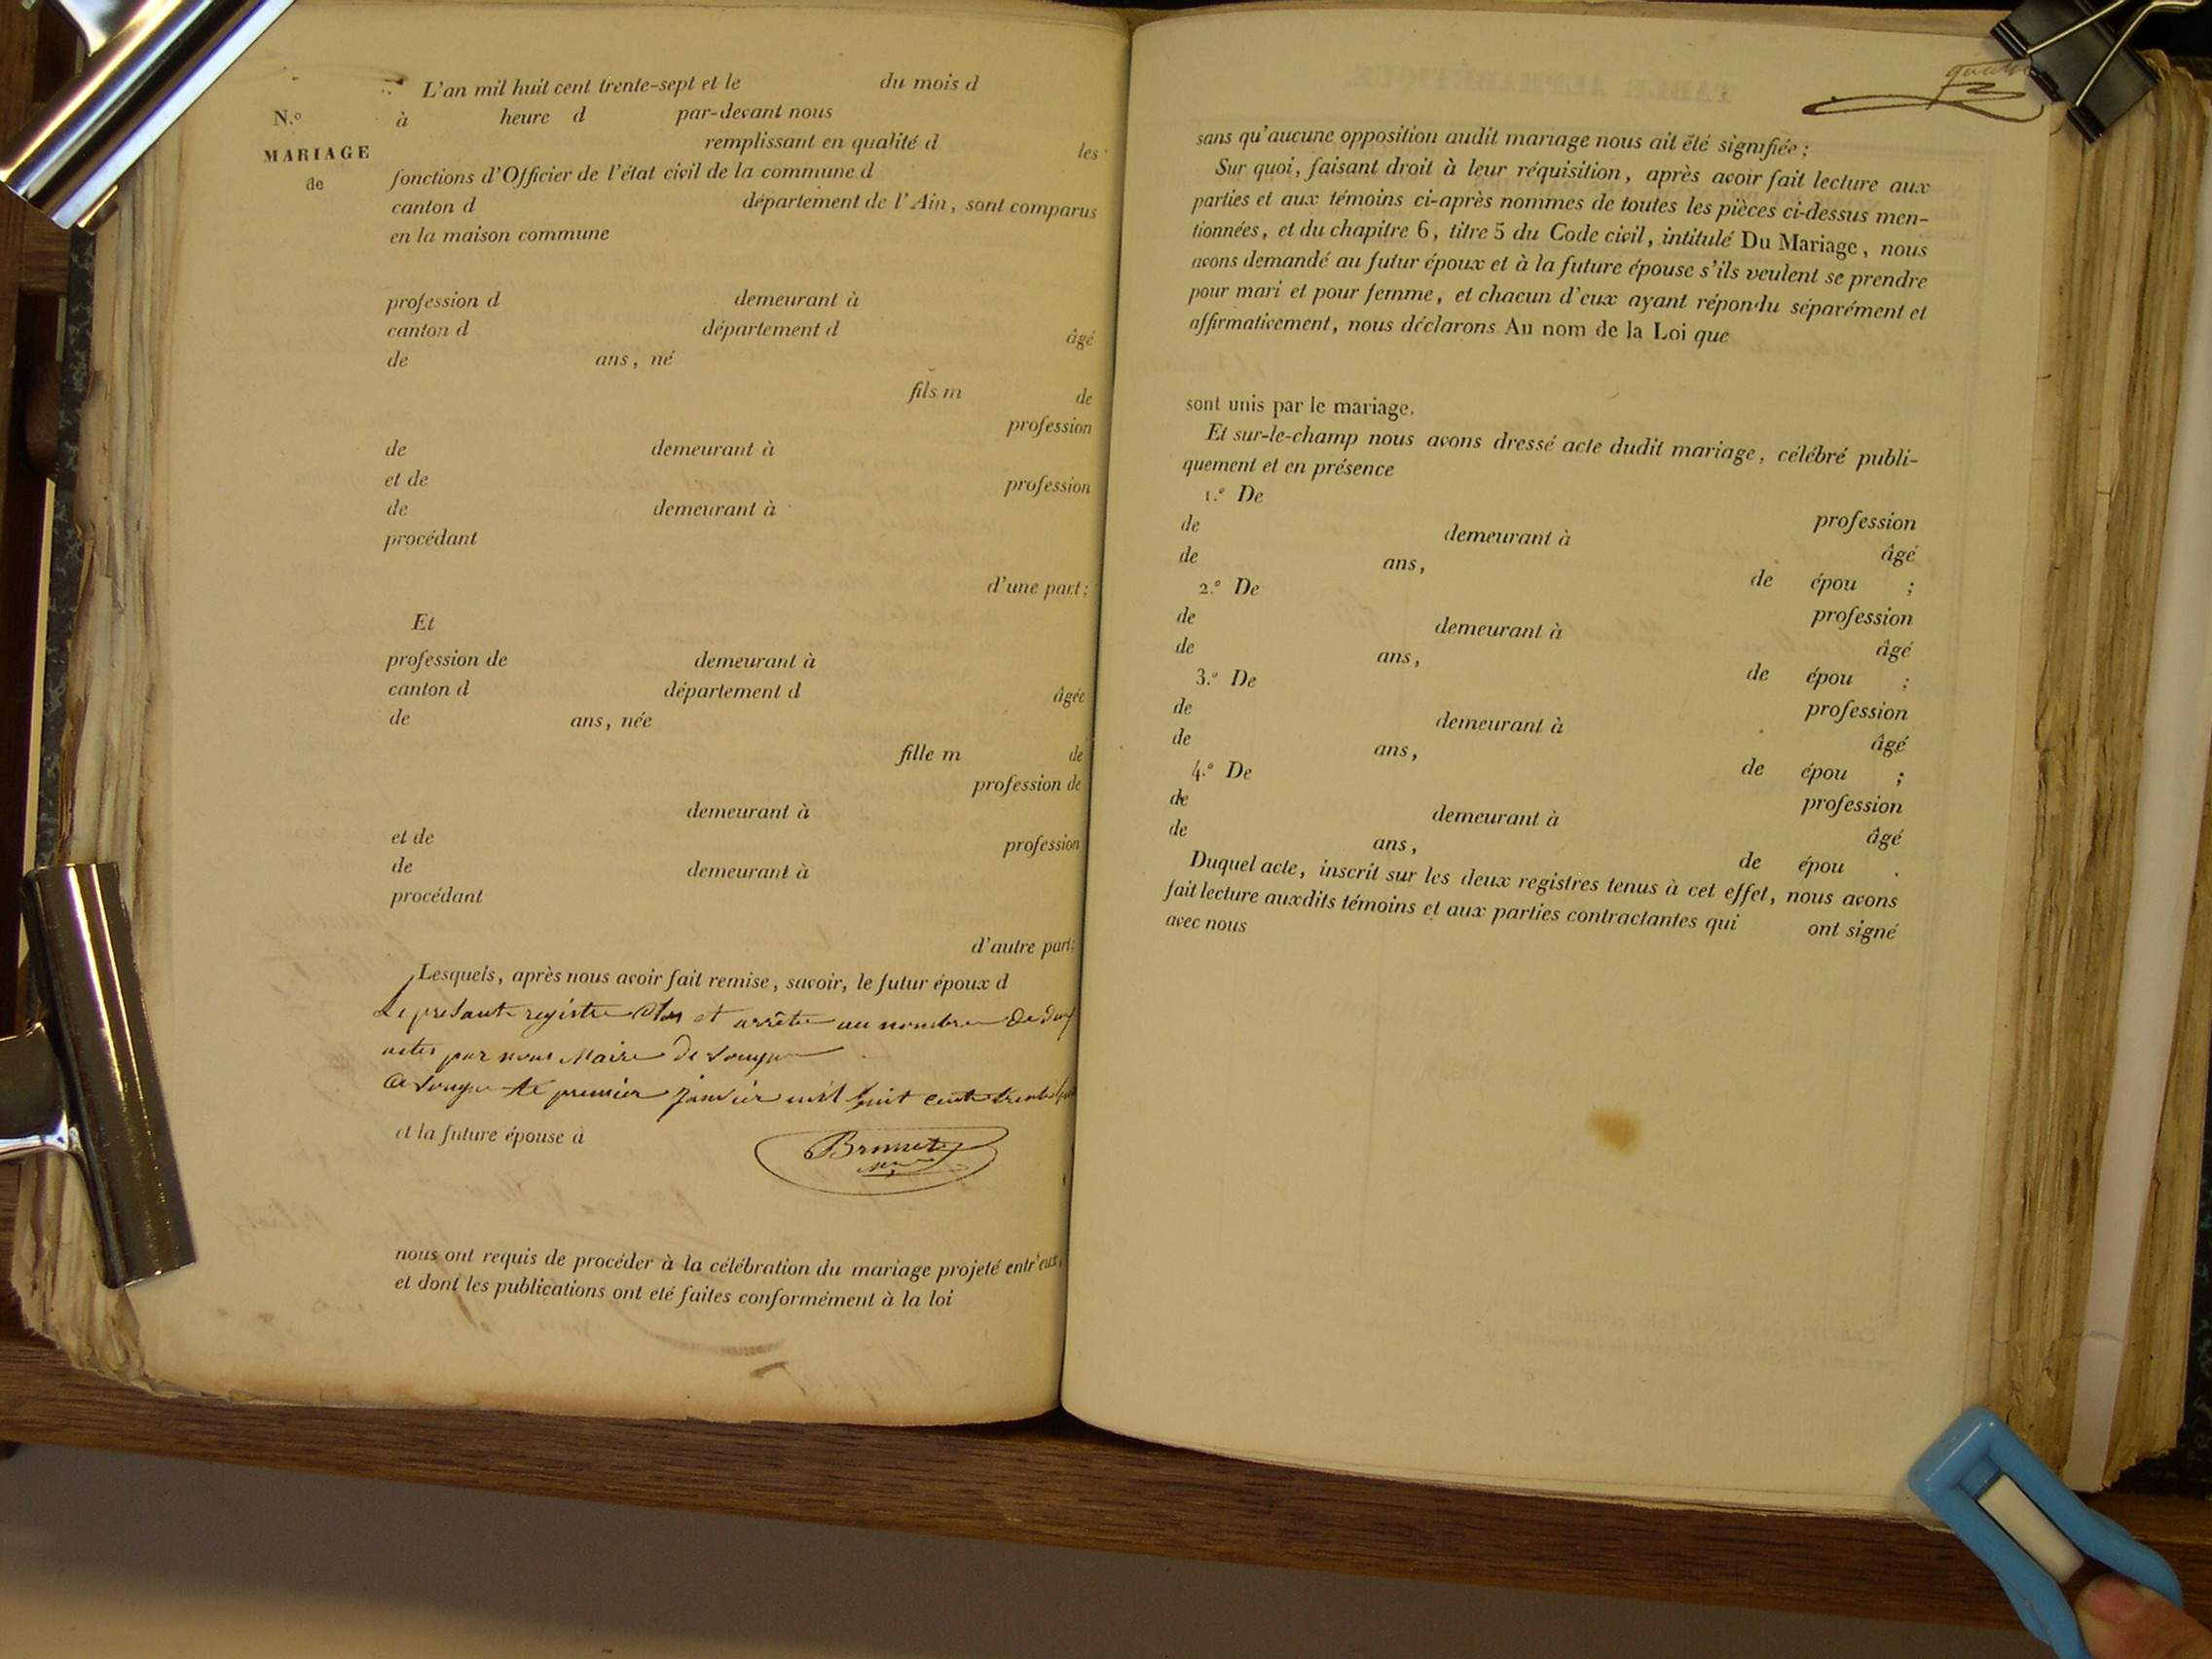 L'an mil huit cent trente-sept et le du mois d
N.° à heure d par-devant nous
MARIAGE remplissant en qualité d les
de fonctions d'Officier de l'état civil de la commune d
canton d département de l'Ain, sont comparus
en la maison commune
profession d demeurant à
canton d département d âgé
de ans, né
fils m de
profession
de demeurant à
et de profession
de demeurant à
procédant
d'une part;
Et
profession de demeurant à
canton d département d âgée
de ans, née
fille m de
profession de
demeurant à
et de profession
de demeurant à
procédant
d'autre part:
Lesquels, après nous avoir fait remise, savoir, le futur époux d
Le présent registre et arrêté au nombre de
actes par nous Maire de
le premier janvier mil huit cent
et la future épouse d
Brunet
nous ont requis de procéder à la célébration du mariage projeté entr'eux,
et dont les publications ont été faites conformément à la loi
sans qu'aucune opposition audit mariage nous ait été signifiée;
Sur quoi, faisant droit à leur réquisition, après avoir fait lecture aux
parties et aux témoins ci-après nommes de toutes les pièces ci-dessus men-
tionnées, et du chapitre 6, titre 5 du Code civil, intitulé Du Mariage, nous
avons demandé au futur époux et à la future épouse s'ils veulent se prendre
pour mari et pour femme, et chacun d'eux ayant répondu séparément et
affirmativement, nous déclarons Au nom de la Loi que
sont unis par le mariage.
Et sur-le-champ nous avons dressé acte dudit mariage, célébré publi-
quement et en présence
1.° De profession
de demeurant à âgé
de ans, de épou ;
2.° De profession
de demeurant à âgé
de ans, de épou ;
3.° De profession
de demeurant à âgé
de ans, de épou ;
4.° De profession
de demeurant à âgé
de ans, de épou .
Duquel acte, inscrit sur les deux registres tenus à cet effet, nous avons
fait lecture auxdits témoins et aux parties contractantes qui ont signé
avec nous